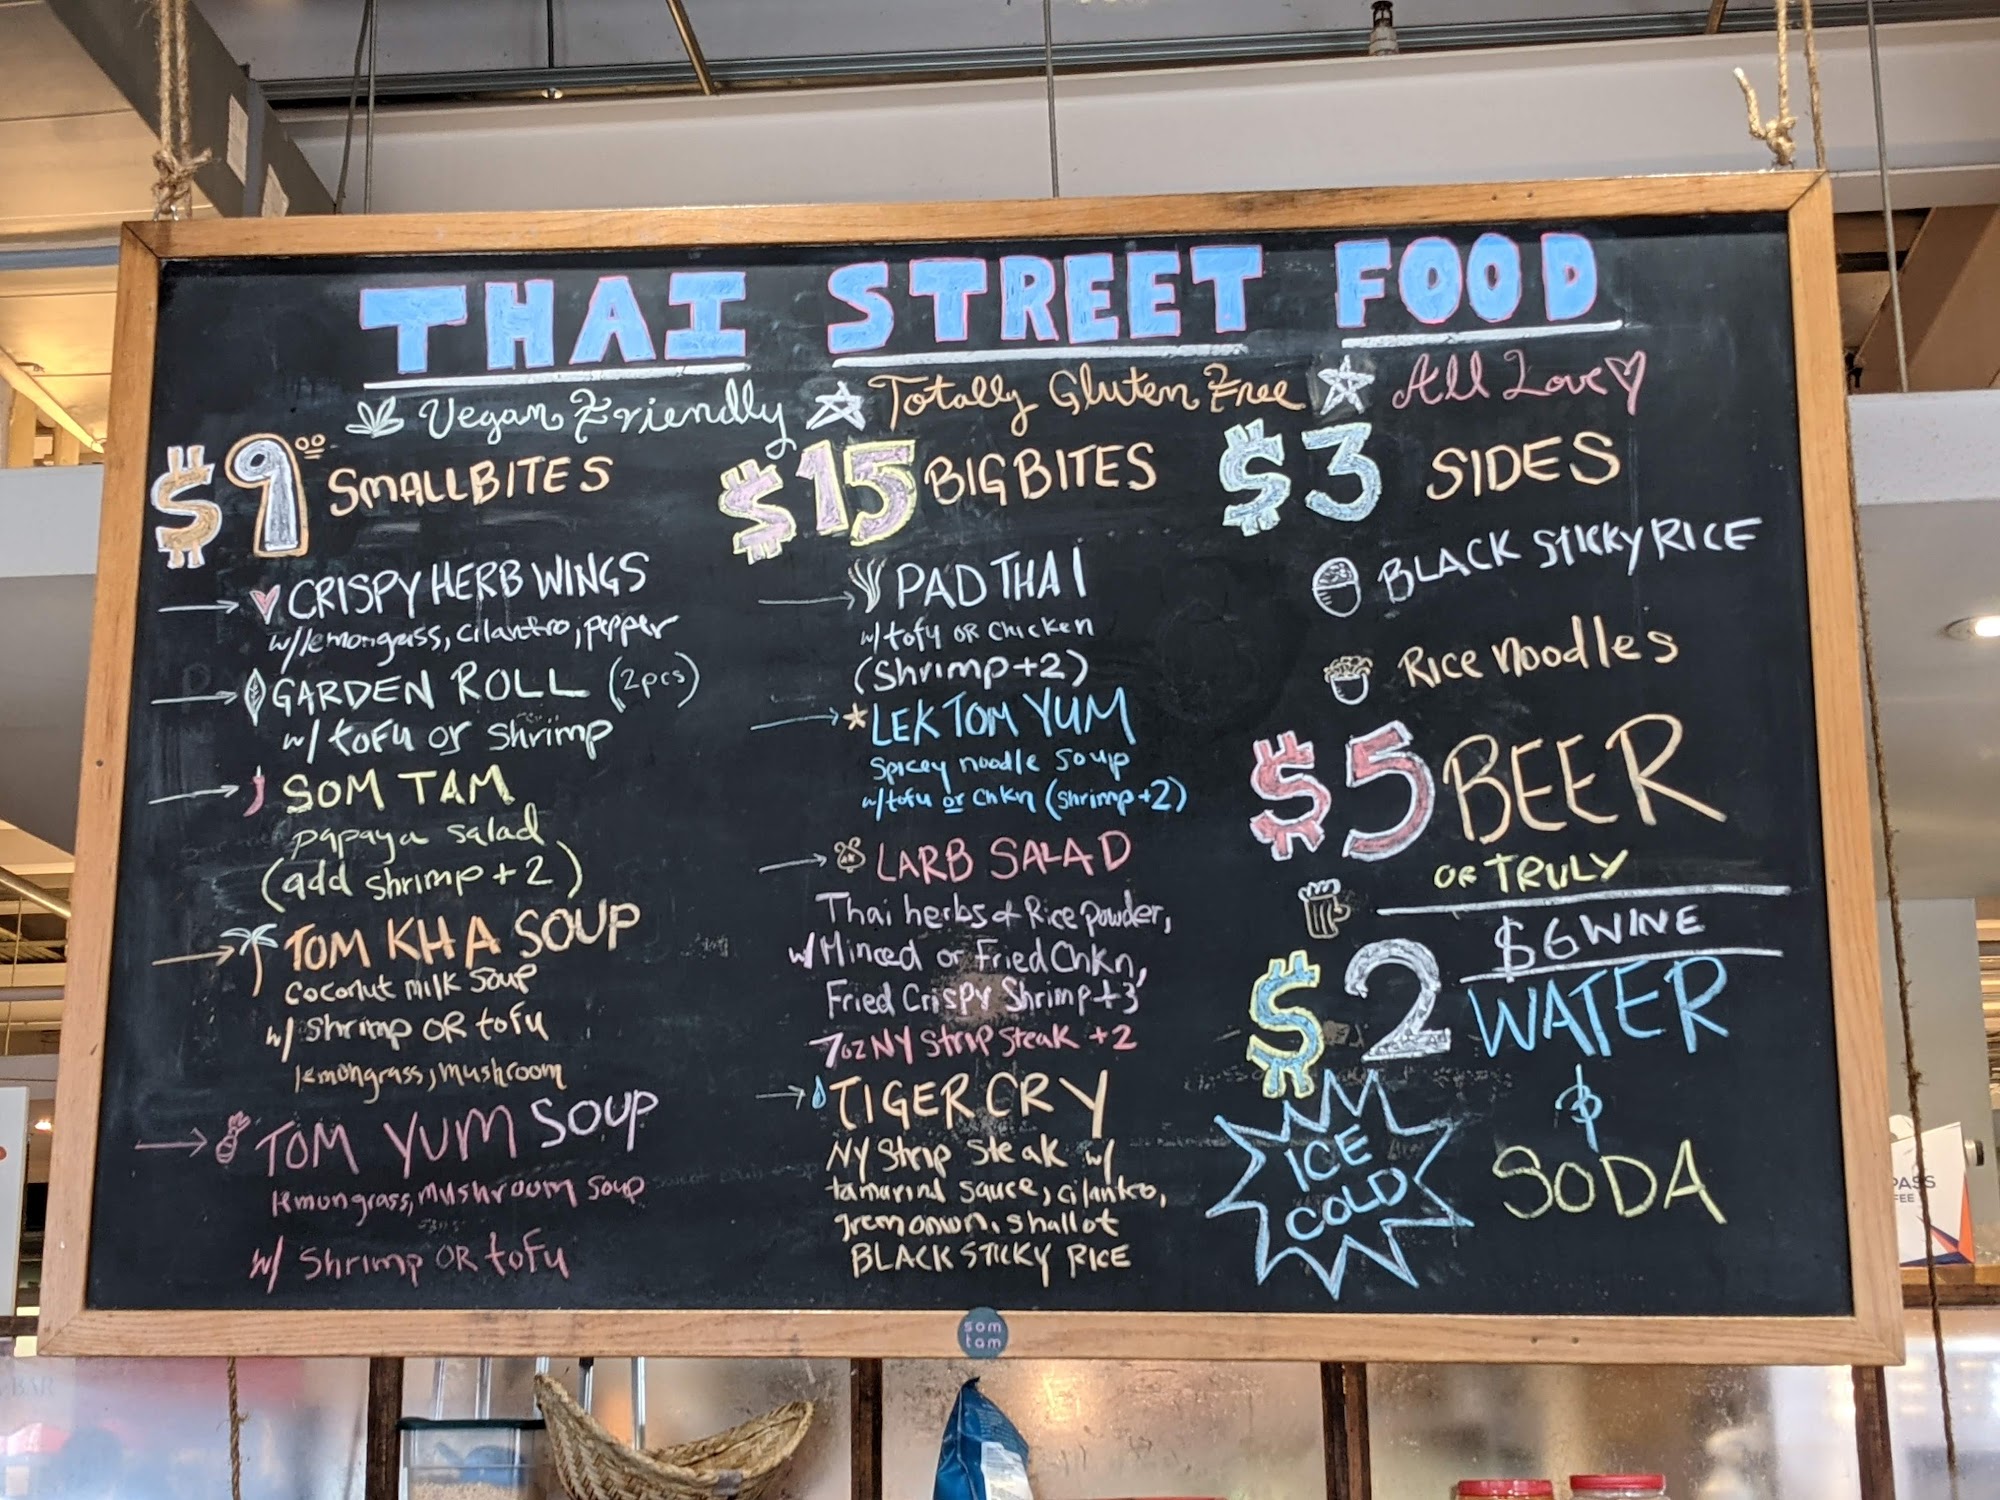 THAI STREET FOOD
Vegan Friendly Totally Gluten Free All Love
$9.00 SMALL BITES
CRISPY HERB WINGS
w/lemongrass, cilantro, pepper
GARDEN ROLL (2pcs)
w/ tofu or shrimp
SOM TAM
papaya salad
(add shrimp +2)
TOM KHA SOUP
coconut milk soup
w/ shrimp OR tofu
lemongrass, mushroom
TOM YUM SOUP
lemongrass, mushroom soup
w/ shrimp OR tofu
$15 BIG BITES
PAD THAI
w/ tofu OR chicken
(Shrimp +2)
LEK TOM YUM
spicey noodle soup
w/tofu or chkn (shrimp +2)
LARB SALAD
Thai herbs & Rice powder,
w/ Minced or Fried Chkn,
Fried Crispy Shrimp +3
7oz NY Strip Steak +2
TIGER CRY
NY Strip Steak w/
tamarind sauce, cilantro,
green onion, shallot
BLACK STICKY RICE
$3 SIDES
BLACK Sticky RICE
Rice Noodles
$5 BEER
or TRULY
$6 WINE
$2 WATER
&
SODA
ICE
COLD
som
tam
PASS
FEE
BAR